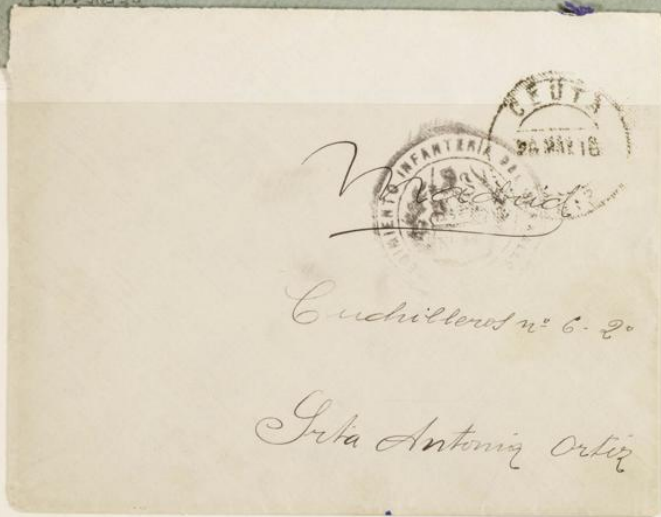 CEUTA
MAR 18
REGIMIENTO INFANTERIA DEL
Madrid
Cuchilleros nº 6 - 2º
Srta Antonia Ortiz